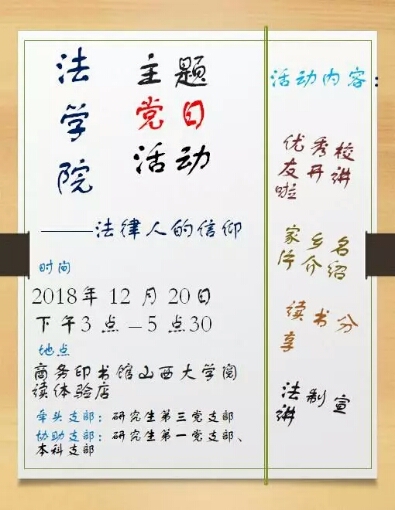 法学院
主题
党日
活动
——法律人的信仰
时间
2018年 12 月 20日
下午3 点 –5 点30
地点
商务印书馆山西大学阅
读体验店
牵头支部：研究生第三党支部
协助支部：研究生第一党支部、
本科支部
活动内容：
优秀校
友开讲
啦
家乡名
片介绍
读书分
享
法制宣
讲